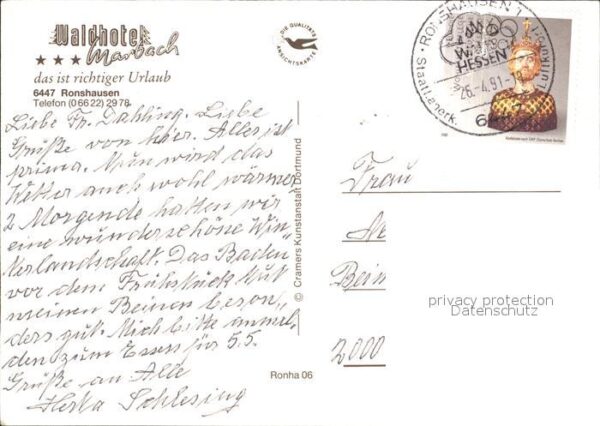 Waldhotel
Marbach
das ist richtiger Urlaub
6447 Ronshausen
Telefon (0 66 22) 29 78
Liebe Fr. Dahling. Liebe
Grüße von hier. Alles ist
prima. Nun wird das
Wetter auch wohl wärmer
2 Morgende hatten wir
eine wunderschöne Win„
terlandschaft. Das Baden
vor dem Frühstück tut
meinen Beinen beson„
ders gut. Mich bitte anmel„
den zum Essen für 5.5.
Grüße an Alle
Herta Schlesing
DIE QUALITÄTS
ANSICHTSKARTE
© Cramers Kunstanstalt Dortmund
Ronha 06
RONSHAUSEN 1
Luftkurort
WALD
HESSEN
26.-4.91-
6447
Staatl. anerk.
Frau
Bein
2000
privacy protection
Datenschutz